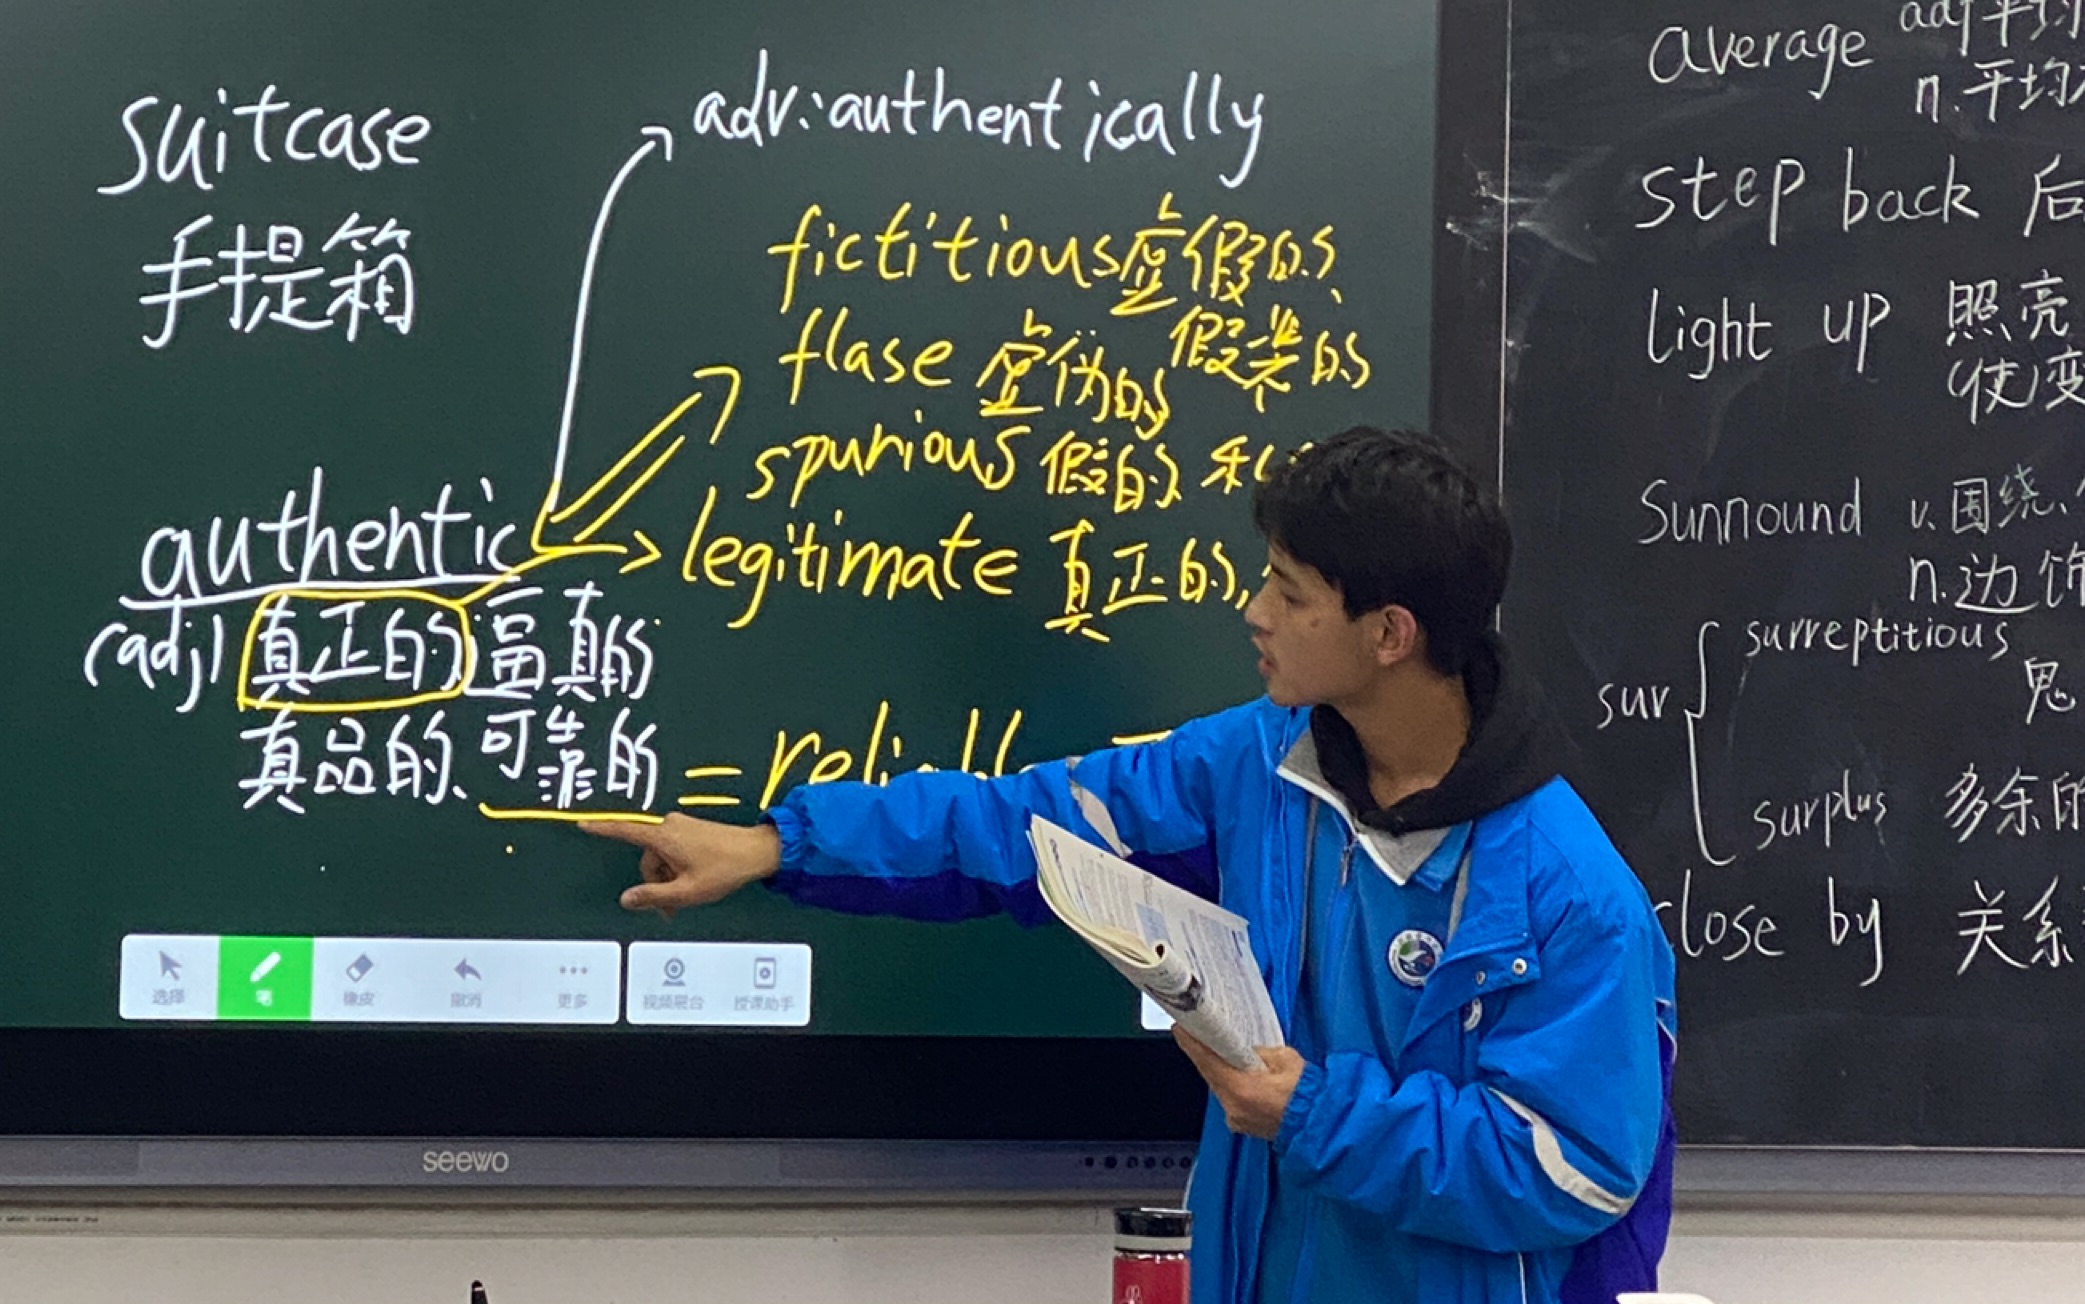 suitcase
手提箱
adv:authentically
fictitious虚假的、
假装的
flase 虚伪的
spurious 假的
legitimate 真正的,
authentic
(adj) 真正的 逼真的
真品的、可靠的 =
选择
笔
橡皮
撤消
更多
视频展台
授课助手
seewo
average adj平均
n.平均
step back 后
light up 照亮
(使)变
Sunnound v.围绕、
n.边饰
sur
surreptitious
鬼
surplus 多余的
close by 关系